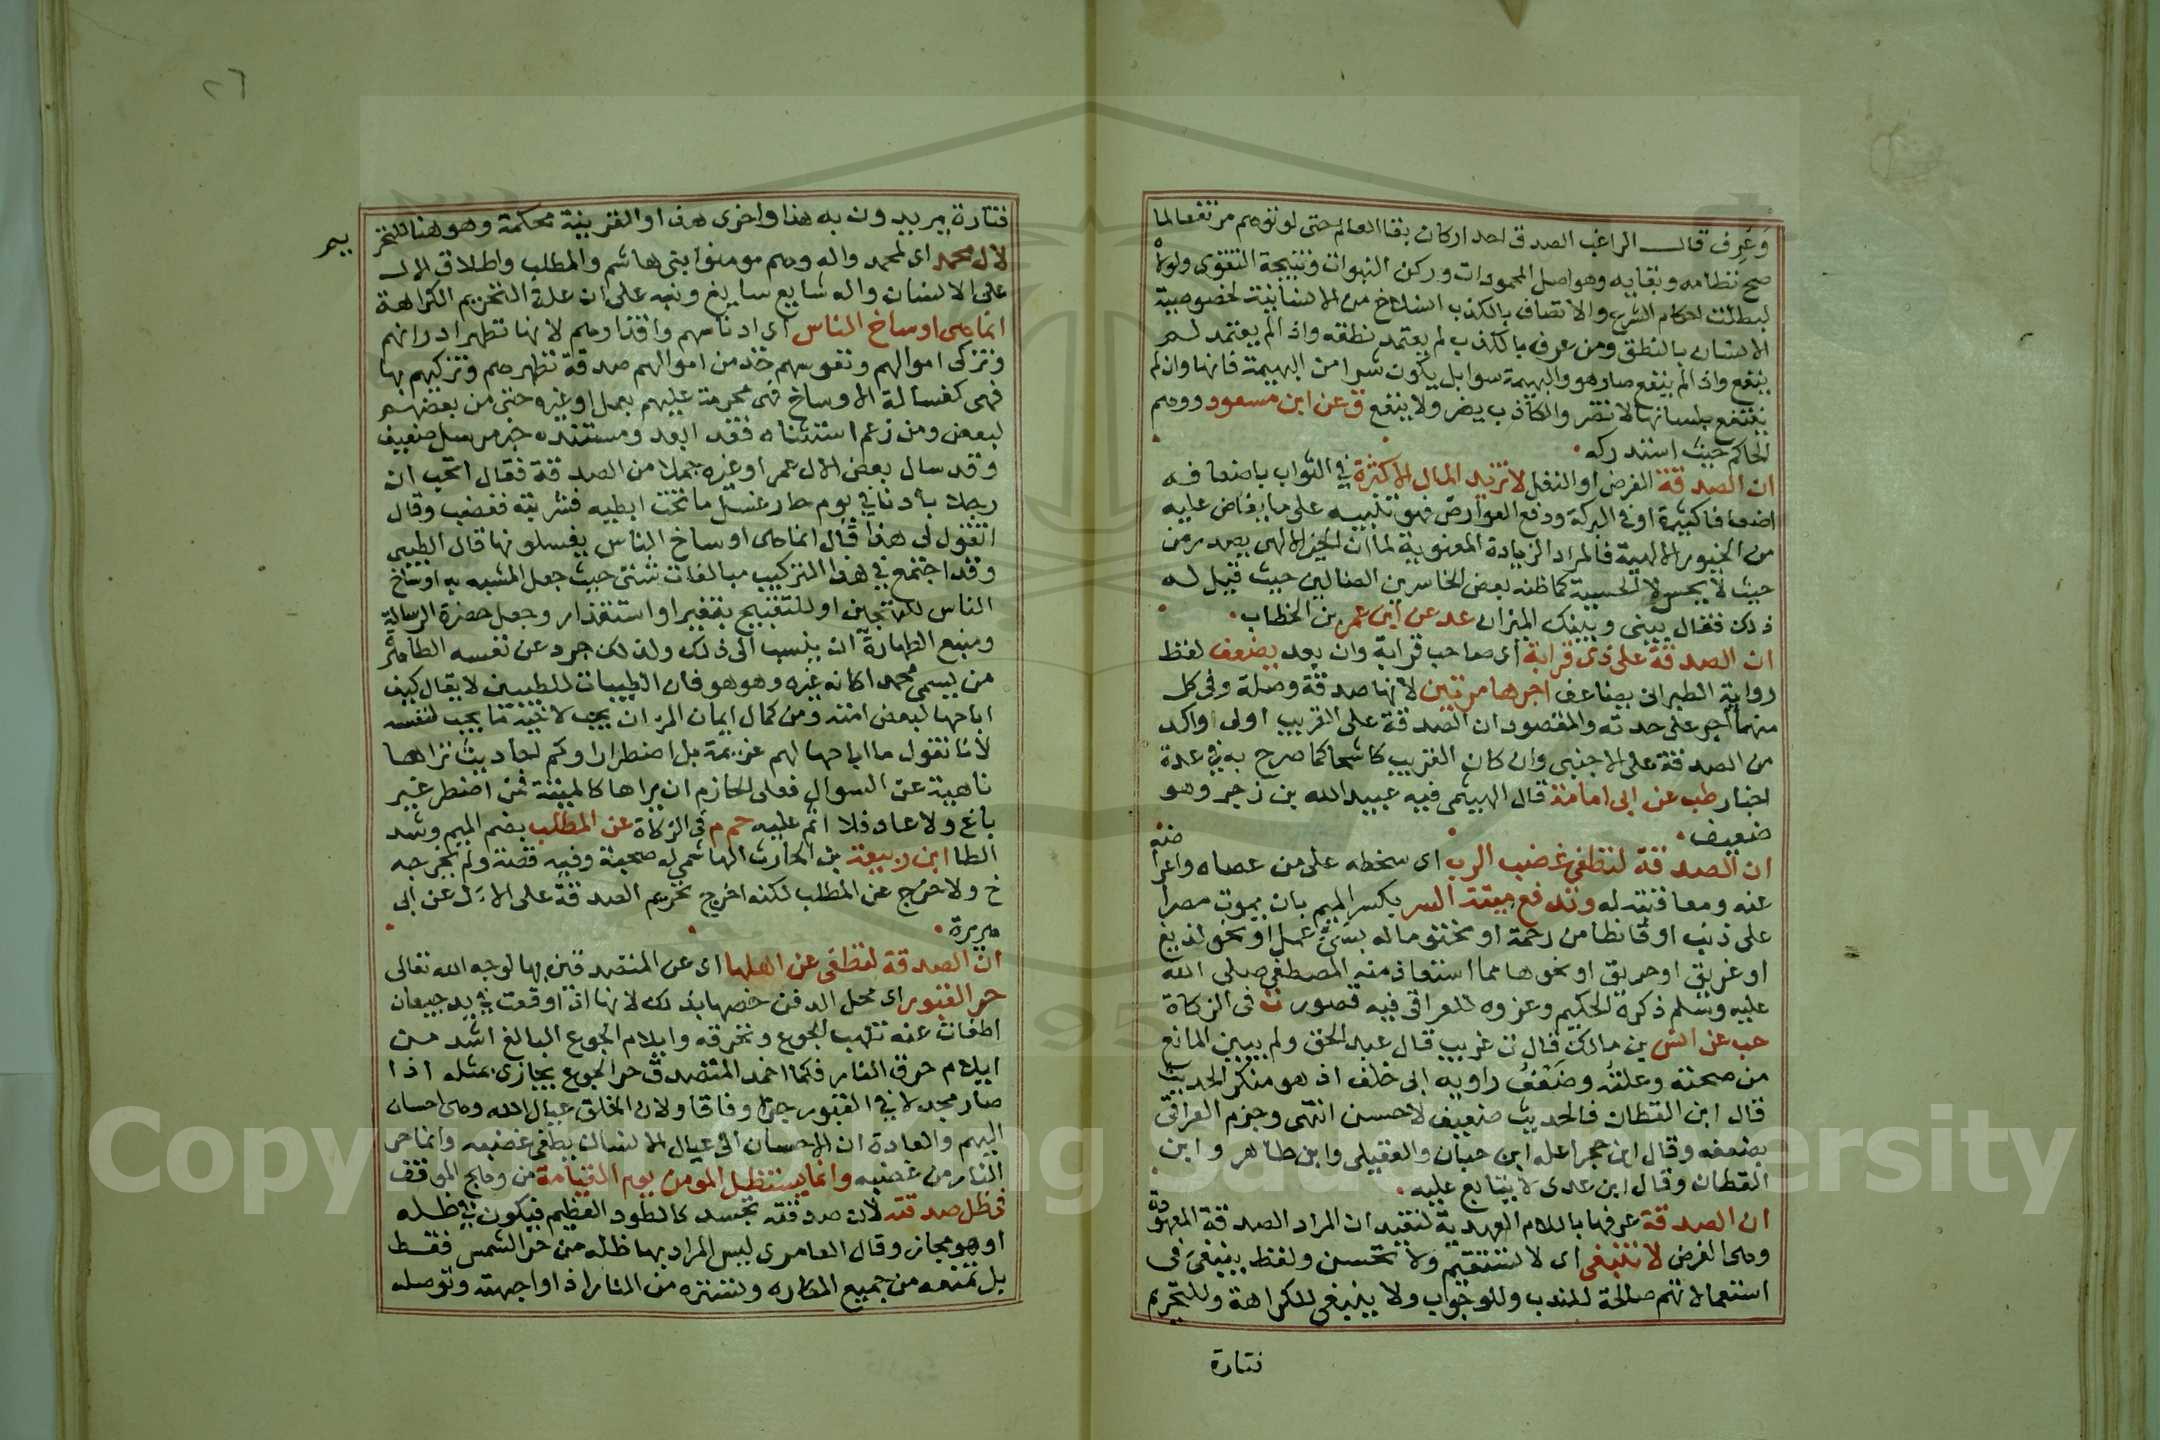 وعرف قال الراغب الصدق احد اركان بقا العالم حتى لو توهم مرتفعا لما
صح نظامه وبقايه وهو اصل المحمودات وركن النبوات ونتيجة التقوى ولولاه
لبطلت احكام الشرع والاتصاف بالكذب انسلاخ من الانسانية لخصوصية
الانسان بالنطق ومن عرف بالكذب لم يعتمد نطقه واذا لم يعتمد لم
ينفع واذا لم ينفع صار هو والبهيمة سوا بل يكون شرا من البهيمة فانها وان لم
ينتفع بلسانها لا تضر والكاذب يضر ولا ينفع ق عن ابن مسعود ووهم
الحاكم حيث استدركه
ان الصدقة الفرض او النفل لا تزيد المال الا كثرة في الثواب باضعافه
اضعافا كثيرة او في البركة ودفع العوارض فهو تنبيه على ما يفاض عليه
من الخيور الالهية فالمراد الزيادة المعنوية لما ان الخير الالهي يصدر من
حيث لا يحس لا الحسية كما ظنه بعض الخاسرين الضالين حيث قيل له
ذلك فقال بيني وبينك الميزان عد عن ابن عمر بن الخطاب
ان الصدقة على ذي قرابة أى صاحب قرابة وان بعد يضعف لفظ
رواية الطبراني يضاعف اجرها مرتين لانها صدقة وصلة وفي كل
منهما اجر على حدته والمقصود ان الصدقة على القريب اولى واكد
من الصدقة على الاجنبي وان كان القريب كاشحا كما صرح به في عدة
اخبار طب عن ابى امامة قال الهيثمي فيه عبيد الله بن زحر وهو
ضعيف
ان الصدقة لتطفي غضب الرب اى سخطه على من عصاه واعراضه
عنه ومعاقبته له وتدفع ميتة السوء بكسر الميم بان يموت مصرا
على ذنب او قانطا من رحمة او مختوما له بسيئ عمل او نحو لديغ
او غريق او حريق او نحوها مما استعاذ منه المصطفى صلى الله
عليه وسلم ذكره الحكيم وعزوه للعراقي فيه قصور ت في الزكاة
حب عن انس بن مالك قال ت غريب قال عبد الحق ولم يبين المانع
من صحته وعلته وضعف راويه ابى خلف اذ هو منكر الحديث
قال ابن القطان فالحديث ضعيف لا حسن انتهى وجزم العراقي
بضعفه وقال ابن حجر اعله ابن حبان والعقيلي وابن طاهر وابن
القطان وقال ابن عدى لا يتابع عليه
ان الصدقة عرفها باللام العهدية لتفيد ان المراد الصدقة المعهودة
وهي الفرض لا تنبغي اى لا تستقيم ولا تحسن ولفظ ينبغى فى
استعمالاتهم صالحة للندب وللوجوب ولا ينبغي للكراهة وللتحريم
فتارة
فتارة يريدون به هذا واخرى هذا والقرينة محكمة وهو هنا للتحريم
لال محمد اى لمحمد واله وهم مومنوا بني هاشم والمطلب واطلاق الال
على الانسان واله شايع سايغ ونبه على ان علة التحريم الكراهة
انما هي اوساخ الناس اى ادناسهم واقذارهم لانها تطهر ادرانهم
وتزكى اموالهم ونفوسهم خذ من اموالهم صدقة تطهرهم وتزكيهم بها
فهى كغسالة الاوساخ فهي محرمة عليهم بعمل او غيره حتى من بعضهم
لبعض ومن زعم استثناه فقد ابعد ومستنده خبر مرسل ضعيف
وقد سال بعض الال عمر او غيره جملا من الصدقة فقال اتحب ان
رجلا بادنا في يوم حار غسل ما تحت ابطيه فشربته فغضب وقال
اتقول لي هذا قال انما هى اوساخ الناس يغسلونها قال الطيبي
وقد اجتمع في هذا التركيب مبالغات شتى حيث جعل المشبه به اوساخ
الناس للتهجين او للتقبيح تنفيرا واستقذار وجعل حضرة الرسالة
ومنبع الطهارة ان ينسب الى ذلك ولذلك جرد عن نفسه الطاهرة
من يسمى محمد اكانه غيره وهو هو فان الطيبات للطيبين لا يقال كيف
اباحها لبعض امته ومن كمال ايمان المرء ان يحب لاخيه ما يحب لنفسه
لانا نقول ما اباحها لهم عزيمة بل اضطرارا وكم احاديث تراها
ناهية عن السوال فعلى الحازم ان يراها كالميتة فمن اضطر غير
باغ ولا عاد فلا اثم عليه حم م فى الزكاة عن المطلب بضم الميم وشد
الطا ابن ربيعة بن الحارث الهاشمي له صحبة وفيه قصة ولم يخرجه
خ ولا خرج عن المطلب لكنه اخرج تحريم الصدقة على الال عن ابى
هريرة
ان الصدقة لتطفي عن اهلها اى عن المتصدقين بها لوجه الله تعالى
حر القبور اى محل الدفن خصها بذلك لانها اذا وقعت في يد جيعان
اطفات عنه تلهب الجوع وتحرقه وايلام الجوع البالغ اشد من
ايلام حرق النار فكما اخمد المتصدق حر الجوع يجازى بمثله اذا
صار مجدلا في القبور جزا وفاقا ولان الخلق عيال الله وهى احسان
اليهم والعادة ان الاحسان الى عيال الانسان يطفى غضبه وانما حر
النار من غضبه وانما يستظل المومن يوم القيامة من وهج الموقف
في ظل صدقته لان صدقته تجسد كالطود العظيم فيكون في ظله
او هو مجاز وقال العامري ليس المراد بها ظله من حر الشمس فقط
بل تمنعه من جميع المكاره وتستره من النار اذا واجهته وتوصله
٢٦
Copyright © King Saud University